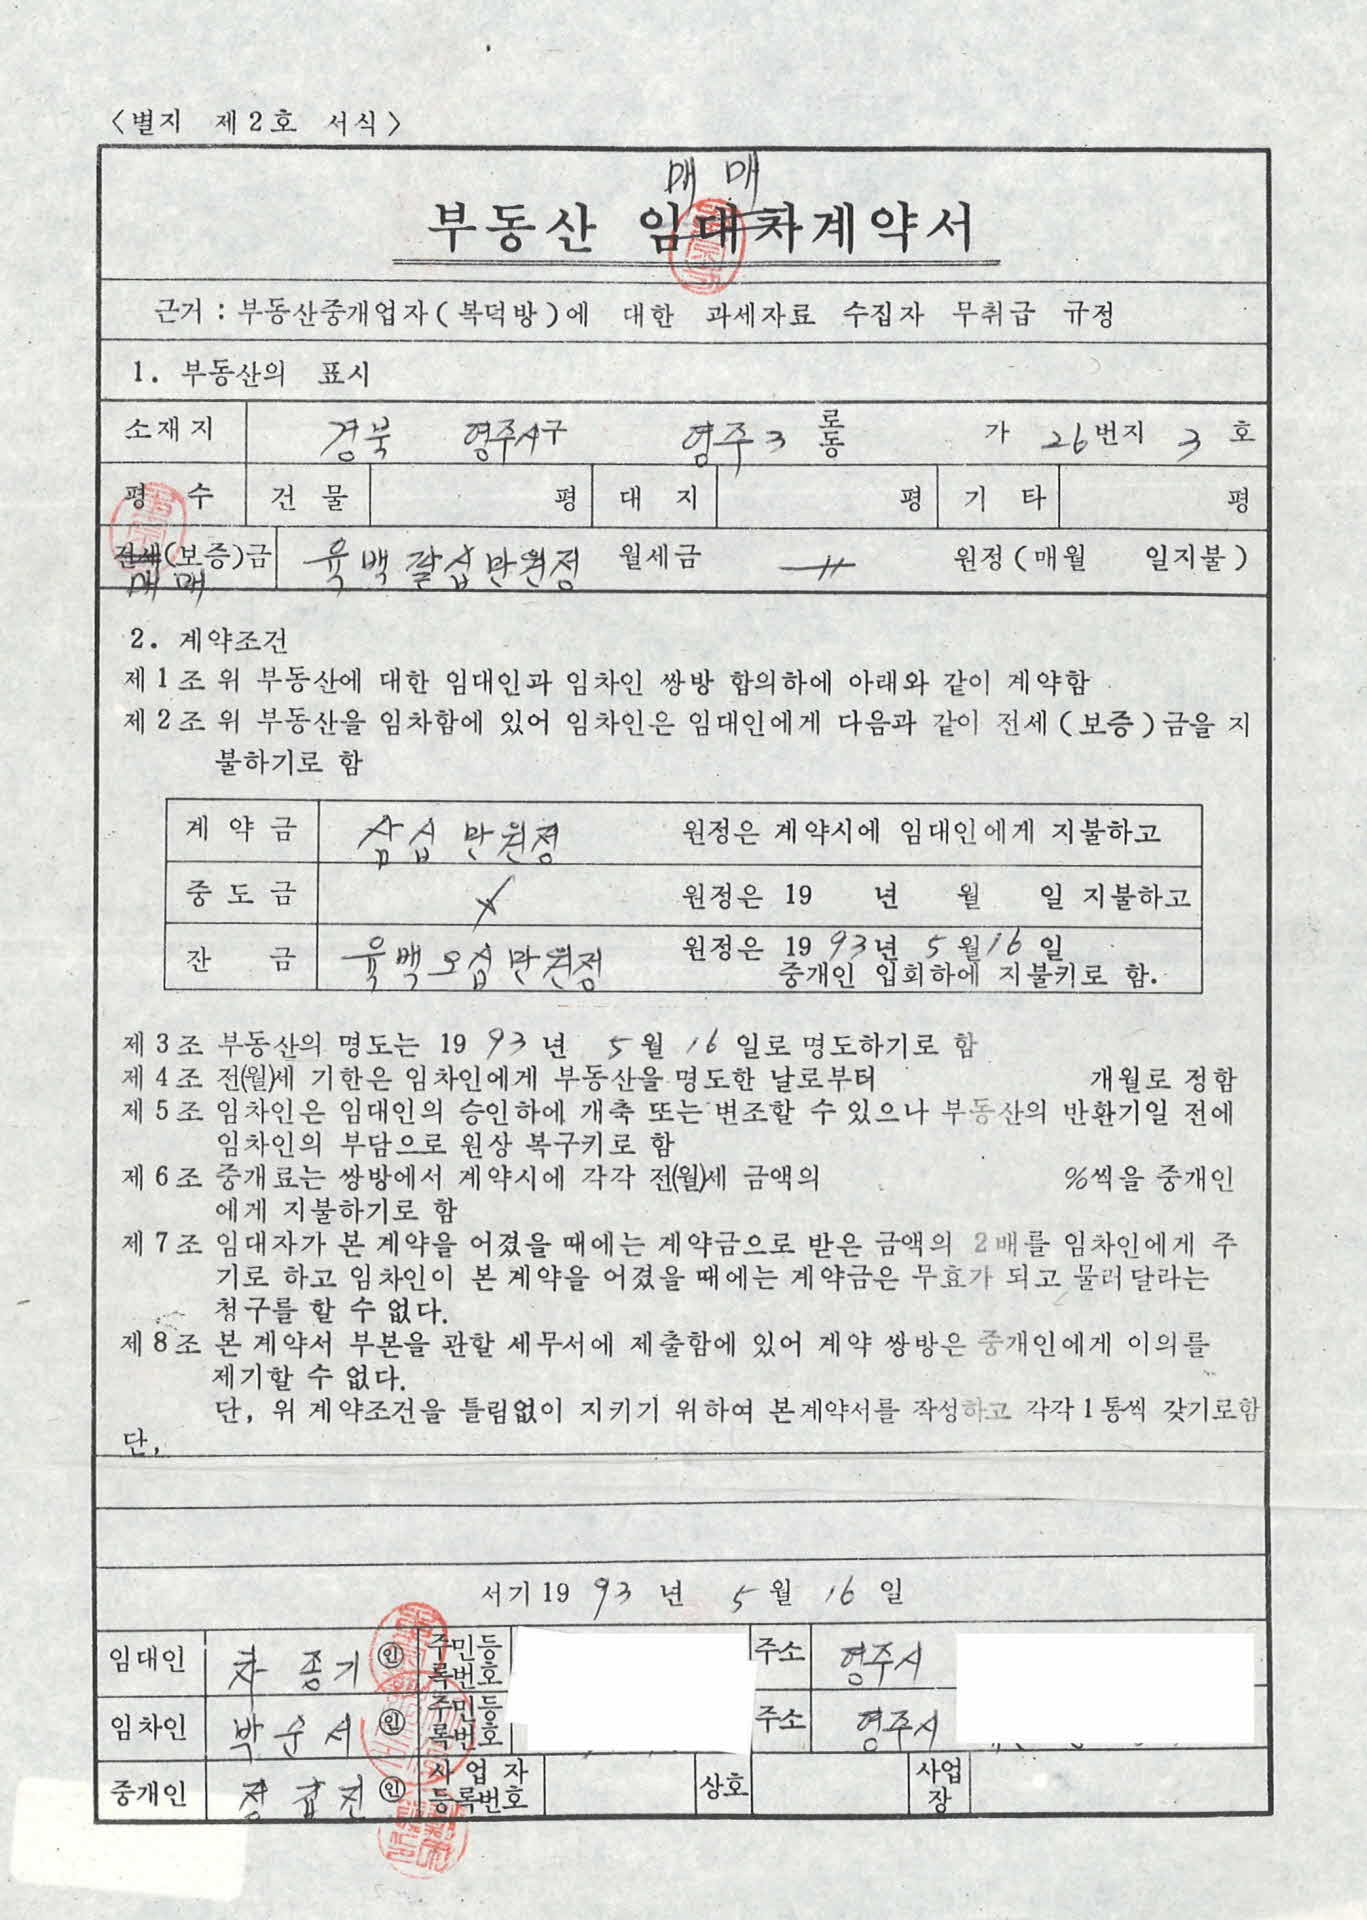 <별지 제2호 서식>
매매
부동산 임대차계약서
근거 : 부동산중개업자(복덕방)에 대한 과세자료 수집자 무취급 규정
1. 부동산의 표시
소재지 경북 영주시구 영주3 로동 가 26번지 3호
평수 건물 평 대지 평 기타 평
전세(보증)금 육백팔십만원정 월세금 원정(매월 일지불)
매매
2. 계약조건
제1조 위 부동산에 대한 임대인과 임차인 쌍방 합의하에 아래와 같이 계약함
제2조 위 부동산을 임차함에 있어 임차인은 임대인에게 다음과 같이 전세(보증)금을 지
불하기로 함
계약금 삼십만원정 원정은 계약시에 임대인에게 지불하고
중도금 원정은 19 년 월 일 지불하고
잔금 육백오십만원정 원정은 1993년 5월16일
중개인 입회하에 지불키로 함.
제3조 부동산의 명도는 1993년 5월 16일로 명도하기로 함
제4조 전(월)세 기한은 임차인에게 부동산을 명도한 날로부터 개월로 정함
제5조 임차인은 임대인의 승인하에 개축 또는 변조할 수 있으나 부동산의 반환기일 전에
임차인의 부담으로 원상 복구키로 함
제6조 중개료는 쌍방에서 계약시에 각각 전(월)세 금액의 %씩을 중개인
에게 지불하기로 함
제7조 임대자가 본 계약을 어겼을 때에는 계약금으로 받은 금액의 2배를 임차인에게 주
기로 하고 임차인이 본 계약을 어겼을 때에는 계약금은 무효가 되고 물러달라는
청구를 할 수 없다.
제8조 본 계약서 부본을 관할 세무서에 제출함에 있어 계약 쌍방은 중개인에게 이의를
제기할 수 없다.
단, 위 계약조건을 틀림없이 지키기 위하여 본계약서를 작성하고 각각 1통씩 갖기로함
단,
서기1993년 5월 16일
임대인 차종기 ㊞ 주민등록번호 주소 영주시
임차인 박순서 ㊞ 주민등록번호 주소 영주시
중개인 ㊞ 사업자등록번호 상호 사업장